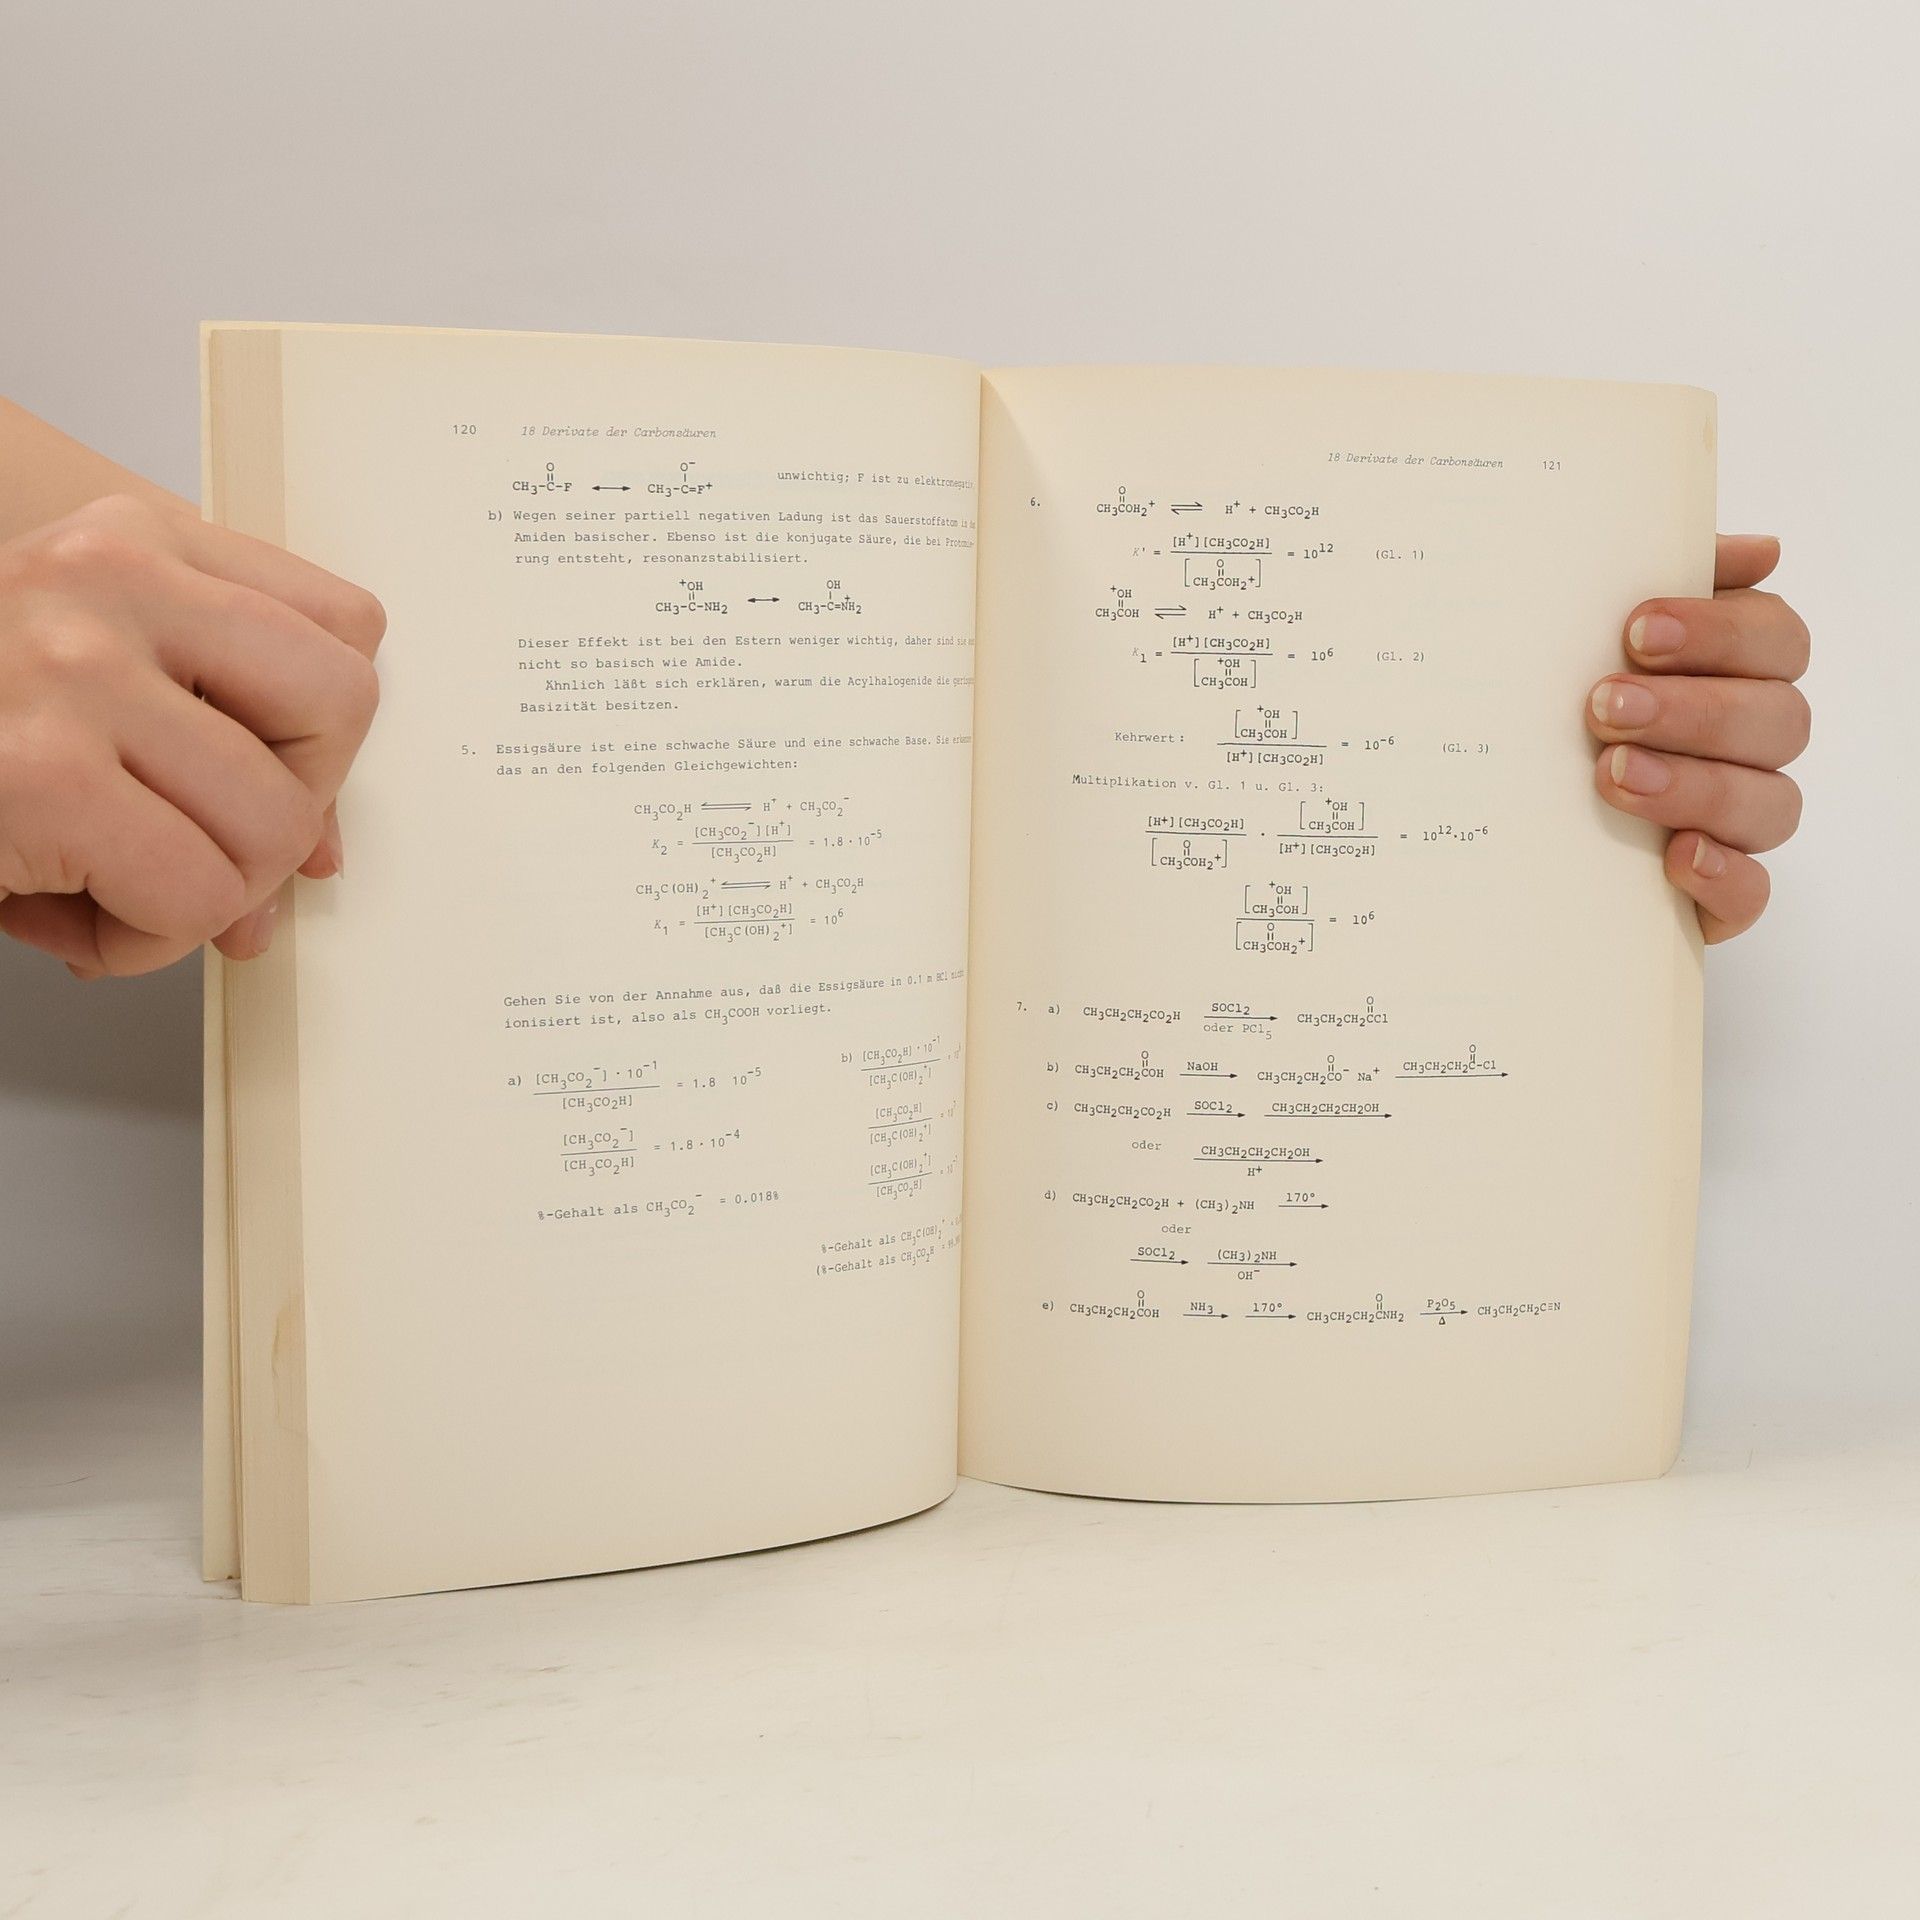 120 18 Derivate der Carbonsäuren
O O⁻
CH₃-C-F ⟷ CH₃-C=F⁺ unwichtig; F ist zu
b) Wegen seiner partiell negativen Ladung ist das Sauerstoffatom in
Amiden basischer. Ebenso ist die konjugate Säure, die bei
rung entsteht, resonanzstabilisiert.
⁺OH OH
CH₃-C-NH₂ ⟷ CH₃-C=N⁺H₂
Dieser Effekt ist bei den Estern weniger wichtig, daher sind sie
nicht so basisch wie Amide.
Ähnlich läßt sich erklären, warum die Acylhalogenide die
Basizität besitzen.
5. Essigsäure ist eine schwache Säure und eine schwache Base. Sie
das an den folgenden Gleichgewichten:
CH₃CO₂H ⇌ H⁺ + CH₃CO₂⁻
K₂ = [CH₃CO₂⁻][H⁺] / [CH₃CO₂H] = 1.8·10⁻⁵
CH₃C(OH)₂⁺ ⇌ H⁺ + CH₃CO₂H
K₁ = [H⁺][CH₃CO₂H] / [CH₃C(OH)₂⁺] = 10⁶
Gehen Sie von der Annahme aus, daß die Essigsäure in 0.1 m HCl
ionisiert ist, also als CH₃COOH vorliegt.
a) [CH₃CO₂⁻]·10⁻¹ / [CH₃CO₂H] = 1.8 10⁻⁵
[CH₃CO₂⁻] / [CH₃CO₂H] = 1.8·10⁻⁴
%-Gehalt als CH₃CO₂⁻ = 0.018%
b) [CH₃CO₂H]·10⁻¹ / [CH₃C(OH)₂⁺] =
[CH₃CO₂H] / [CH₃C(OH)₂⁺] =
[CH₃C(OH)₂⁺] / [CH₃CO₂H] =
%-Gehalt als CH₃C(OH)₂⁺
(%-Gehalt als CH₃CO₂H
18 Derivate der Carbonsäuren 121
6. O
CH₃COH₂⁺ ⇌ H⁺ + CH₃CO₂H
K' = [H⁺][CH₃CO₂H] / [CH₃C(=O)OH₂⁺] = 10¹² (Gl. 1)
⁺OH
CH₃COH ⇌ H⁺ + CH₃CO₂H
K₁ = [H⁺][CH₃CO₂H] / [CH₃C(=⁺OH)OH] = 10⁶ (Gl. 2)
Kehrwert: [CH₃C(=⁺OH)OH] / [H⁺][CH₃CO₂H] = 10⁻⁶ (Gl. 3)
Multiplikation v. Gl. 1 u. Gl. 3:
[H⁺][CH₃CO₂H] / [CH₃C(=O)OH₂⁺] · [CH₃C(=⁺OH)OH] / [H⁺][CH₃CO₂H] = 10¹²·10⁻⁶
[CH₃C(=⁺OH)OH] / [CH₃C(=O)OH₂⁺] = 10⁶
7. a) CH₃CH₂CH₂CO₂H SOCl₂ oder PCl₅ → CH₃CH₂CH₂C(=O)Cl
b) CH₃CH₂CH₂C(=O)OH NaOH → CH₃CH₂CH₂C(=O)O⁻ Na⁺ CH₃CH₂CH₂C(=O)-Cl →
c) CH₃CH₂CH₂CO₂H SOCl₂ → CH₃CH₂CH₂CH₂OH →
oder CH₃CH₂CH₂CH₂OH H⁺ →
d) CH₃CH₂CH₂CO₂H + (CH₃)₂NH 170° →
oder
SOCl₂ → (CH₃)₂NH OH⁻ →
e) CH₃CH₂CH₂C(=O)OH NH₃ → 170° → CH₃CH₂CH₂C(=O)NH₂ P₂O₅ Δ → CH₃CH₂CH₂C≡N